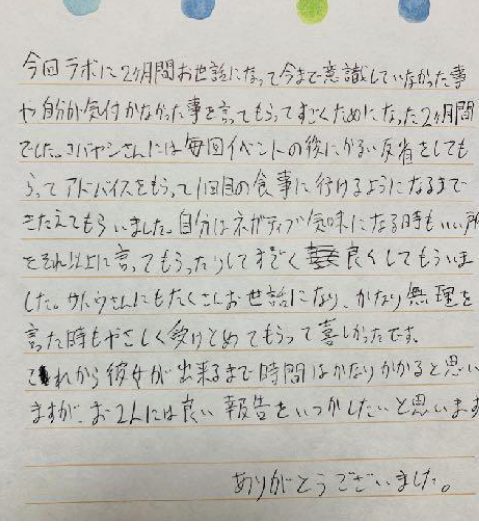 今回ラボに2ヶ月間お世話になって今まで意識していなかった事
や自分が気付かなかった事を言ってもらってすごくためになった2ヶ月間
でした。コバヤシさんには毎回イベントの後にかるい反省をしても
らってアドバイスをもらって1回目の食事に行けるようになるまで
きたえてもらいました。自分はネガティブ気味になる時もいい所
をそれ以上に言ってもらったりしてすごく良くしてもらいま
した。サトウさんにもたくさんお世話になり、かなり無理を
言った時もやさしく受けとめてもらって喜しかったです。
これから彼女が出来るまで時間はかなりかかると思い
ますが、お2人には良い報告をいつかしたいと思います
ありがとうございました。